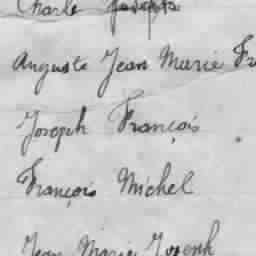 Charle Joseph
Auguste Jean Marie Fr
Joseph François
François Michel
Jean Marie Joseph